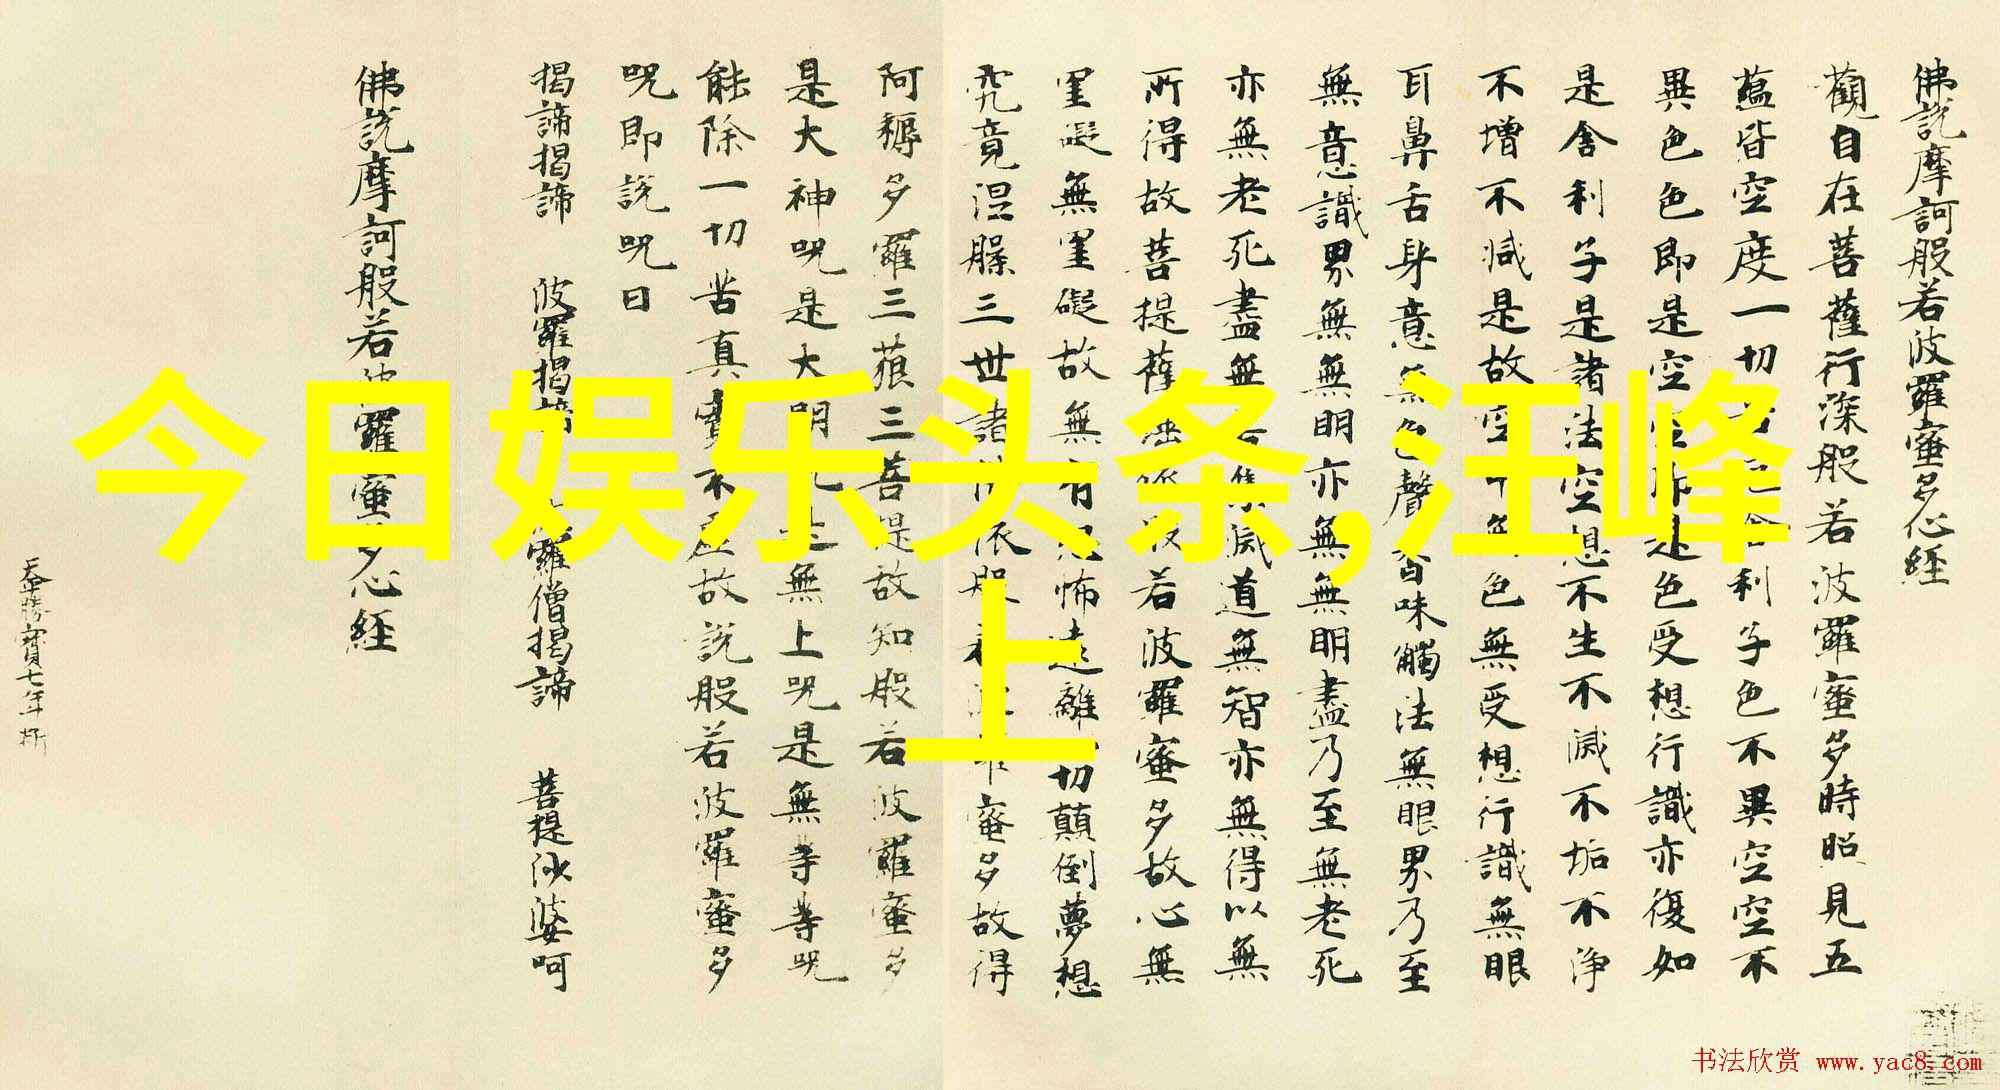 佛說摩訶般若波羅蜜多心經
觀自在菩薩行深般若波羅蜜多時照見五
蘊皆空度一切
利子色不異空空不
異色色即是空空
是色受想行識亦復如
是舍利子是諸法空想不生不滅不垢不淨
不增不減是故空中
色無受想行識無眼
耳鼻舌身意無色聲香味觸法無眼界乃至
無意識界無無明亦無無明盡乃至無老死
亦無老死盡無苦集滅道無智亦無得以無
所得故菩提薩埵依般若波羅蜜多故心無
罣礙無罣礙故無有恐怖遠離一切顛倒夢想
究竟涅槃三世諸佛依般若波羅蜜多故得
阿耨多羅三藐三菩提故知般若波羅蜜多
是大神咒是大明咒是無上咒是無等等咒
能除一切苦真實不虛故說般若波羅蜜多
咒即說咒曰
揭諦揭諦 波羅揭諦 波羅僧揭諦 菩提沙婆呵
佛說摩訶般若波羅蜜多心經
今日娱乐头条,汪峰
上
书法欣赏 www.yac8.com